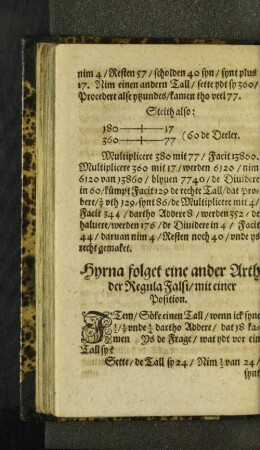 nim 4 / Resten 57 / scholden 40 syn / synt plus
17. Nim einen andern Tall / sette ydt sy 360 /
Procedere alse yßundes / kamen tho veel 77.
Steith also:
180 17
360 77 (60 de Deeler.
Multiplicere 380 mit 77 / Facit 13860.
Multiplicere 360 mit 17 / werden 6120 / nim
6120 van 13860 / blyuen 7740 / de Diuidere
in 60 / kümpt Facit 129 de rechte Tall / dat Pro-
bere / ⅔ vth 129 / synt 86 / de Multiplicere mit 4 /
Facit 344 / dartho Addere 8 / werden 352 / de
haluere / werden 176 / de Diuidere in 4 / Facit
44 / daruan nim 4 / Resten noch 40 / vnde ys
recht gemaket.
Hyrna folget eine ander Arth
der Regula Falsi / mit einer
Position.
Item / Söke einen Tall / wenn ick syne
dartho Addere / dat 18 ka-
men Ys de Frage / wat ydt vor ein
Tall sy?
Sette / de Tall sy 24 / Nim ½ van 24 /
synt